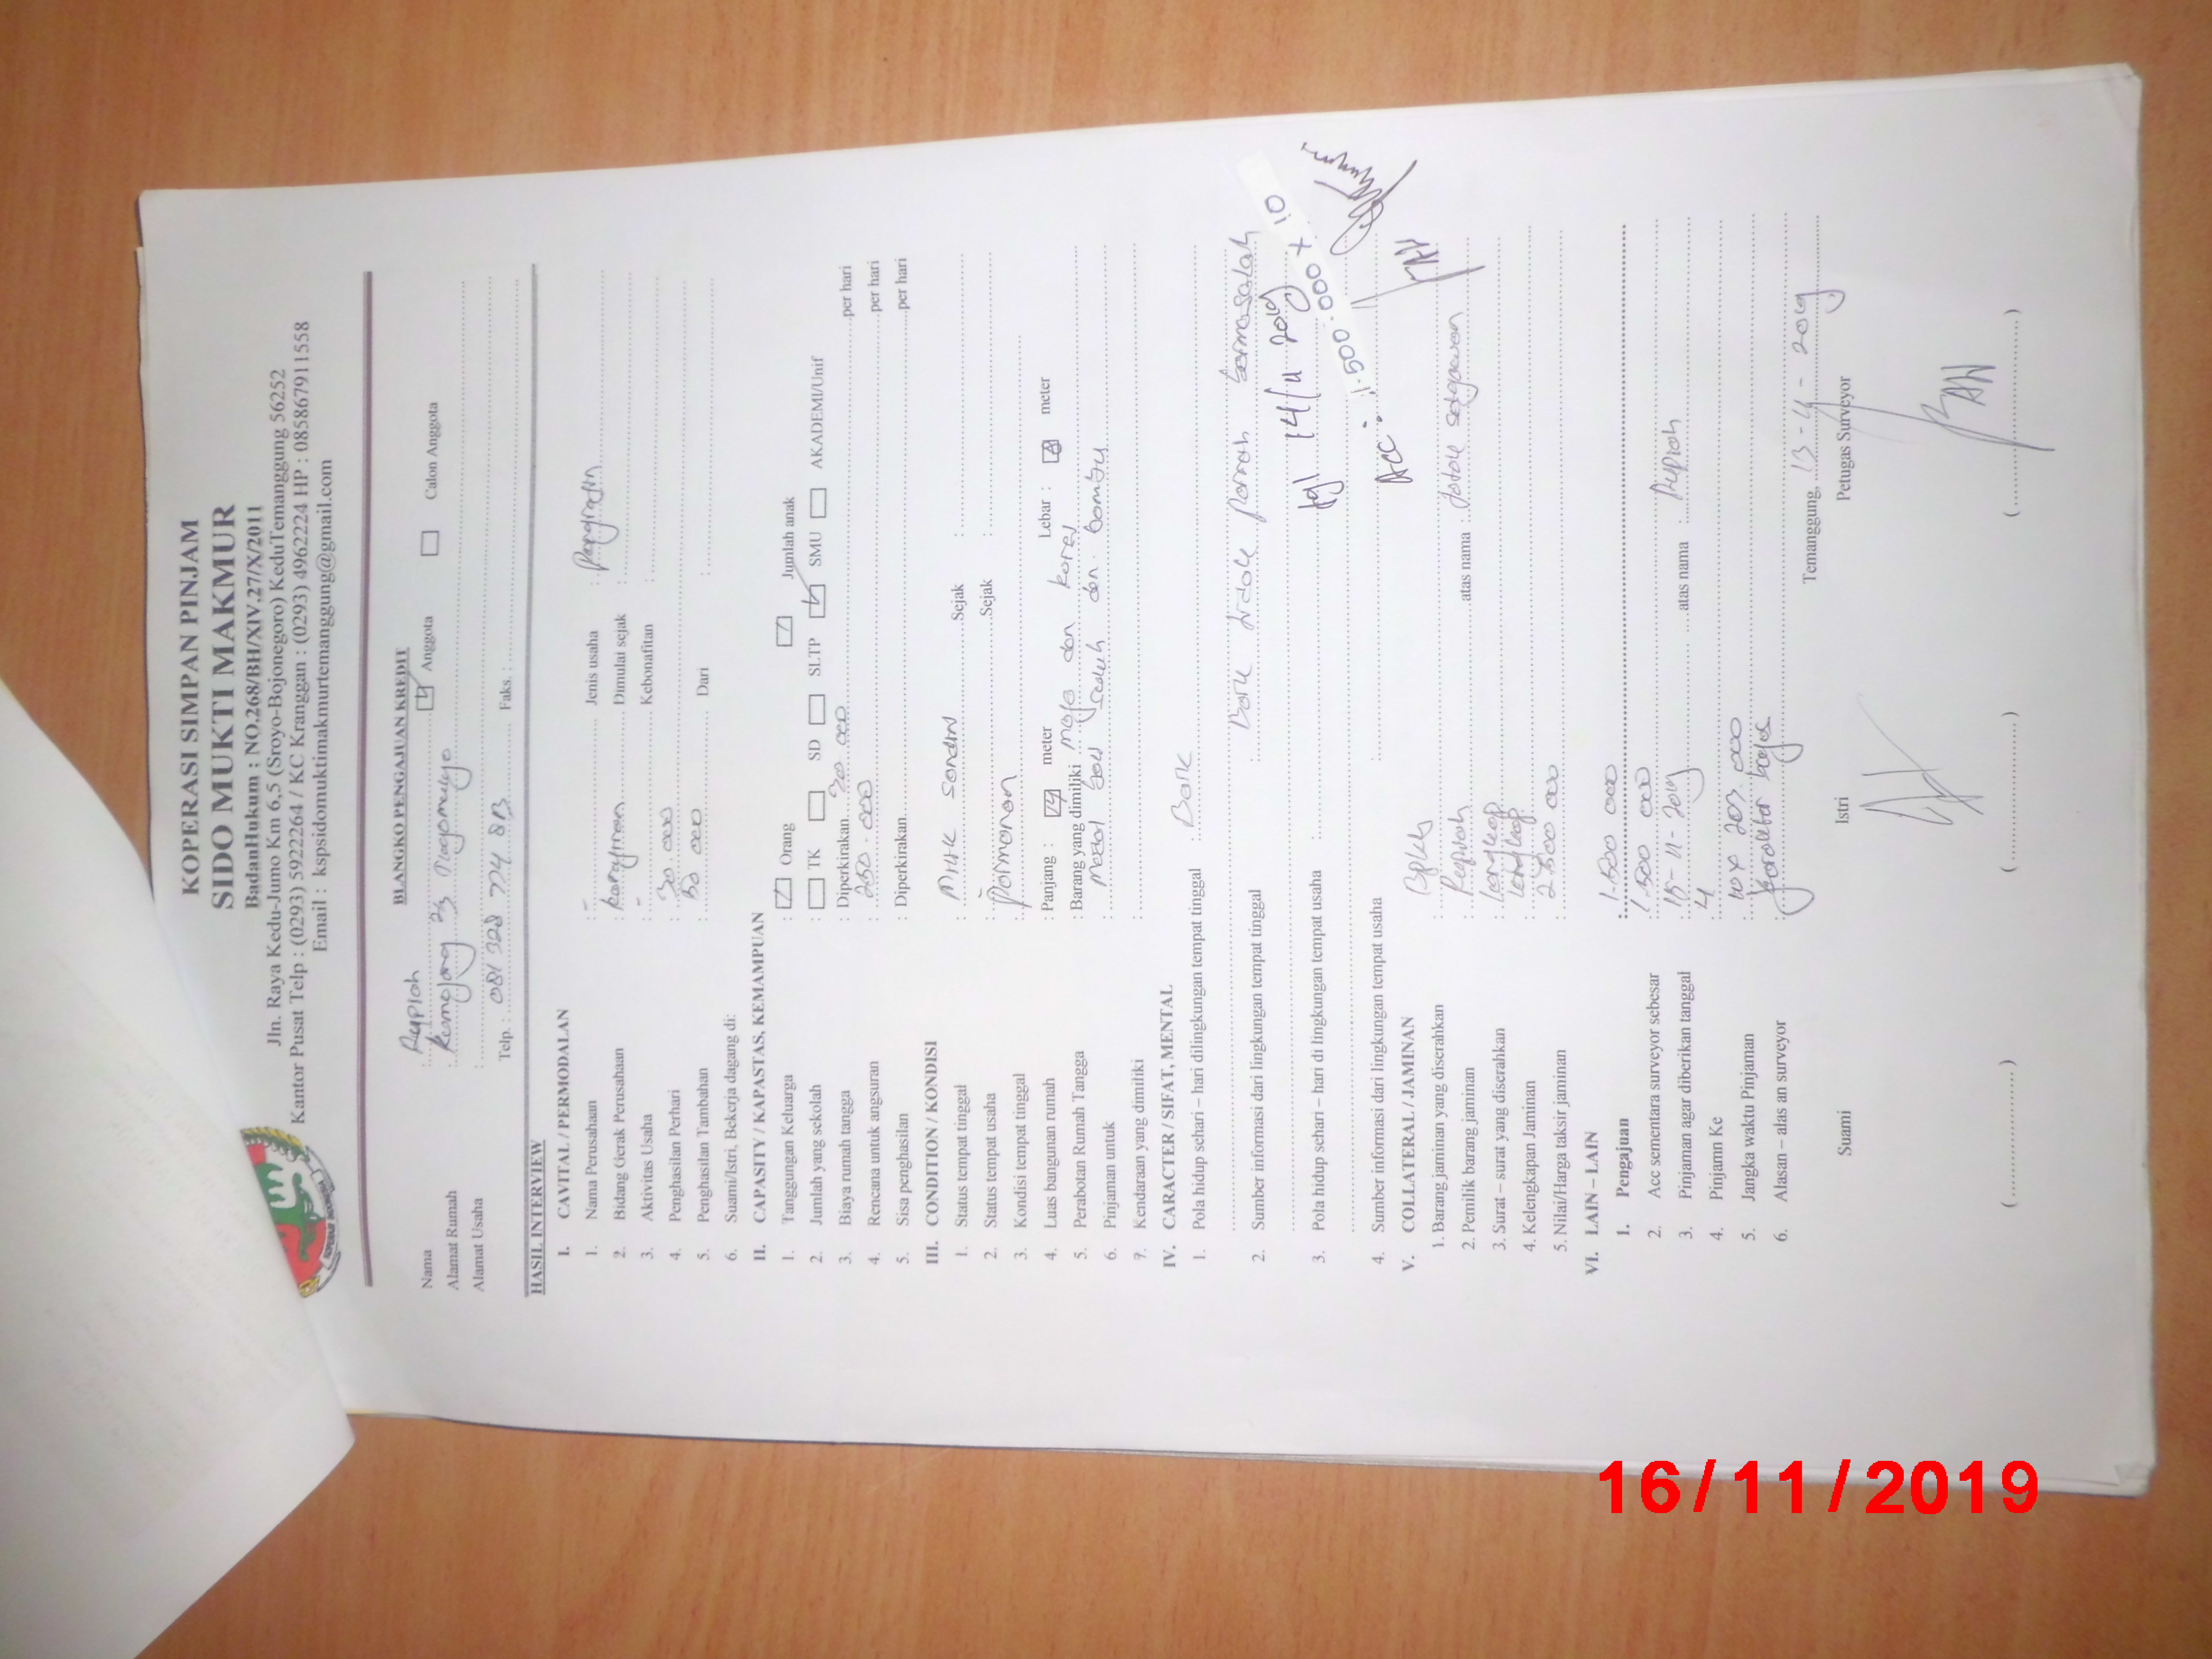 KOPERASI SIMPAN PINJAM
SIDO MUKTI MAKMUR
BadanHukum : NO.268/BH/XIV.27/X/2011
Jln. Raya Kedu-Jumo Km 6,5 (Sroyo-Bojonegoro) KeduTemanggung 56252
Kantor Pusat Telp : (0293) 5922264 / KC Kranggan : (0293) 4962224 HP : 085867911558
Email : kspsidomuktimakmurtemanggung@gmail.com
BLANGKO PENGAJUAN KREDIT
Nama : Rupiah Anggota Calon Anggota
Alamat Rumah : 2/3
Alamat Usaha :
Telp. : 081 328 774 813 Faks. :
HASIL INTERVIEW
I. CAVITAL / PERMODALAN
1. Nama Perusahaan : - Jenis usaha : Pengrajin
2. Bidang Gerak Perusahaan : kerajinan Dimulai sejak :
3. Aktivitas Usaha : - Kebonafitan :
4. Penghasilan Perhari : 30.000
5. Penghasilan Tambahan : 50 000 Dari :
6. Suami/Istri, Bekerja dagang di:
II. CAPASITY / KAPASTAS, KEMAMPUAN
1. Tanggungan Keluarga : Orang Jumlah anak
2. Jumlah yang sekolah : TK SD SLTP SMU AKADEMI/Unif
3. Biaya rumah tangga : Diperkirakan 30.000 per hari
4. Rencana untuk angsuran : 250.000 per hari
5. Sisa penghasilan : Diperkirakan per hari
III. CONDITION / KONDISI
1. Status tempat tinggal : Milik sendiri Sejak :
2. Status tempat usaha : - Sejak :
3. Kondisi tempat tinggal : Permanen
4. Luas bangunan rumah : Panjang : meter Lebar : meter
5. Perabotan Rumah Tangga : Barang yang dimiliki meja dan korsi
6. Pinjaman untuk : modal dan bambu
7. Kendaraan yang dimiliki :
IV. CARACTER / SIFAT, MENTAL
1. Pola hidup sehari – hari dilingkungan tempat tinggal : Baik
2. Sumber informasi dari lingkungan tempat tinggal : Baik tidak pernah bermasalah
3. Pola hidup sehari – hari di lingkungan tempat usaha :
tgl 14/11 2019
4. Sumber informasi dari lingkungan tempat usaha :
Acc : 1.500.000 x 10
V. COLLATERAL / JAMINAN
1. Barang jaminan yang diserahkan : Bpkb
2. Pemilik barang jaminan : Rupiah atas nama :
3. Surat – surat yang diserahkan : Lengkap
4. Kelengkapan Jaminan : Lengkap
5. Nilai/Harga taksir jaminan : 2.500 000
VI. LAIN – LAIN
1. Pengajuan : 1.500 000
2. Acc sementara surveyor sebesar : 1.500 000
3. Pinjaman agar diberikan tanggal : 15 - 11 - 2019 atas nama : Rupiah
4. Pinjamn Ke : 4
5. Jangka waktu Pinjaman : 10 x 203.000
6. Alasan – alas an surveyor : karakter bagus
Temanggung, 13 - 11 - 2019
Suami Istri Petugas Surveyor
(..................) (..................) (..................)
16/11/2019